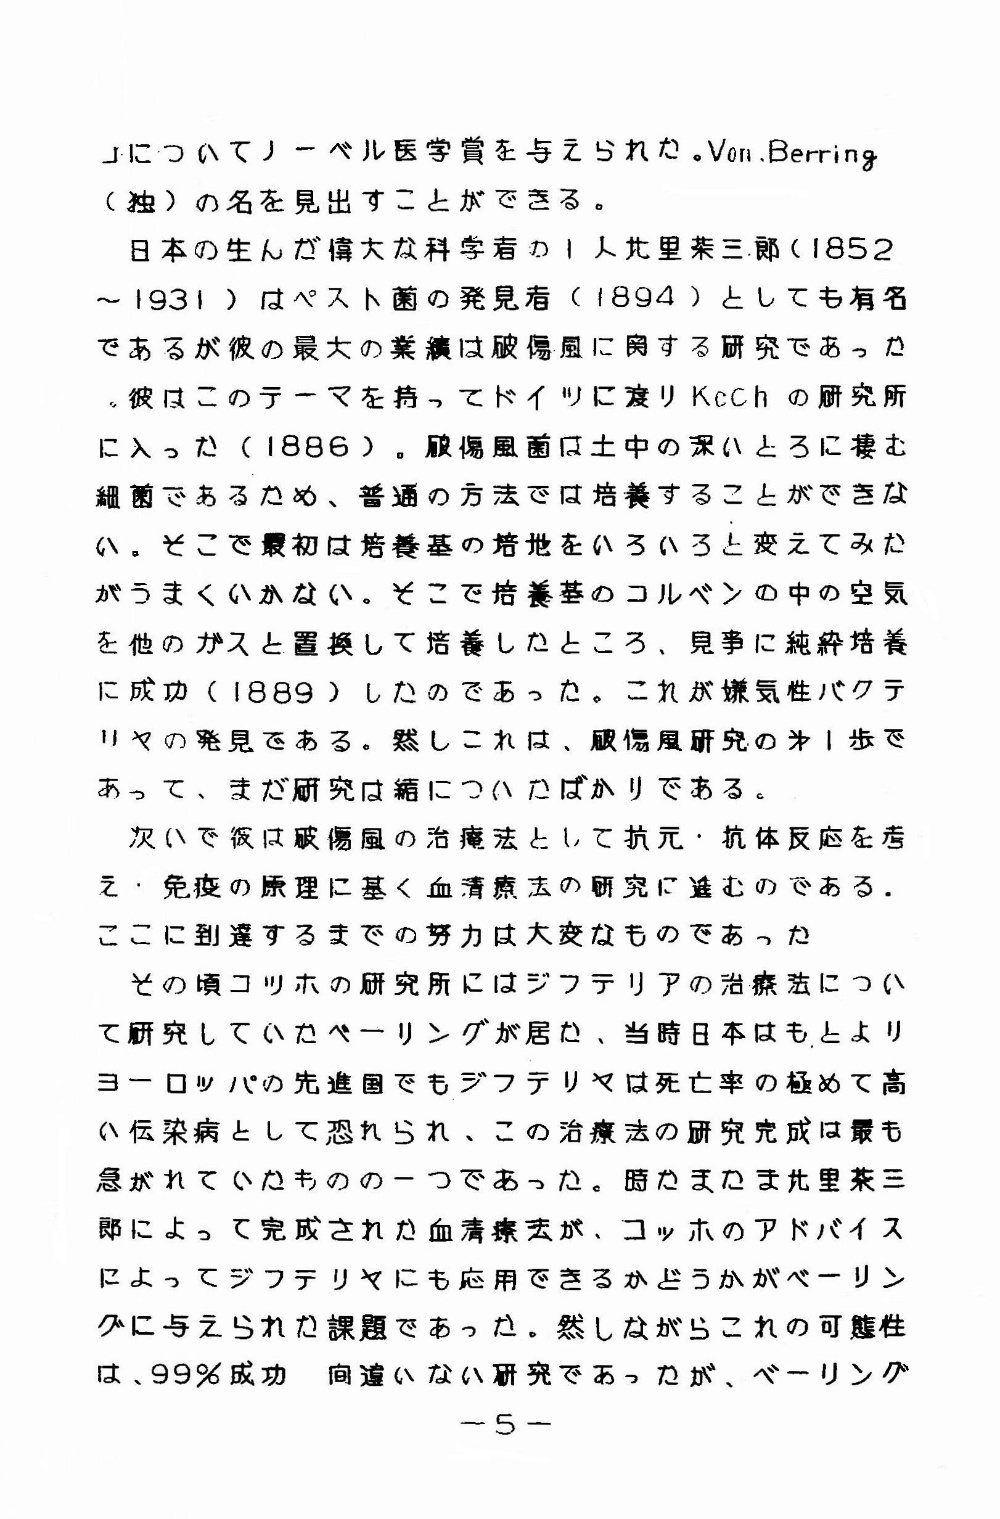 」についてノーベル医学賞を与えられた。Von.Berring
(独)の名を見出すことができる。
日本の生んだ偉大な科学者の1人北里柴三郎(1852
～1931)はペスト菌の発見者(1894)としても有名
であるが彼の最大の業績は破傷風に関する研究であった
。彼はこのテーマを持ってドイツに渡りKcChの研究所
に入った(1886)。破傷風菌は土中の深いとろに棲む
細菌であるため、普通の方法では培養することができな
い。そこで最初は培養基の培地をいろいろと変えてみた
がうまくいかない。そこで培養基のコルベンの中の空気
を他のガスと置換して培養したところ、見事に純粋培養
に成功(1889)したのであった。これが嫌気性バクテ
リヤの発見である。然しこれは、破傷風研究の㐧1歩で
あって、まだ研究は緒についたばかりである。
次いで彼は破傷風の治療法として抗元・抗体反応を考
え・免疫の原理に基く血清療法の研究に進むのである.
ここに到達するまでの努力は大変なものであった
その頃コッホの研究所にはジフテリアの治療法につい
て研究していたベーリングが居た、当時日本はもとより
ヨーロッパの先進国でもジフテリヤは死亡率の極めて高
い伝染病として恐れられ、この治療法の研究完成は最も
急がれていたものの一つであった。時たまたま北里柴三
郎によって完成された血清療法が、コッホのアドバイス
によってジフテリヤにも応用できるかどうかがベーリン
グに与えられた課題であった。然しながらこれの可能性
は、99%成功 間違いない研究であったが、ベーリング
－5－